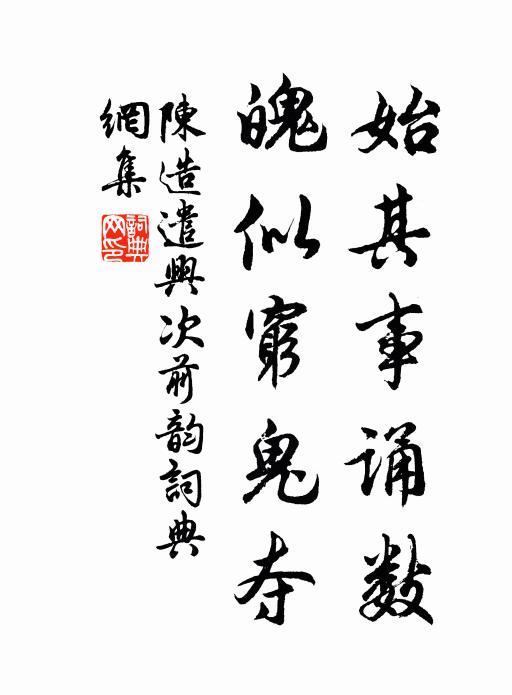 始其事诵数
魄似窮鬼夺
陳造遣興次前韵詞典
網集
詞典
网印